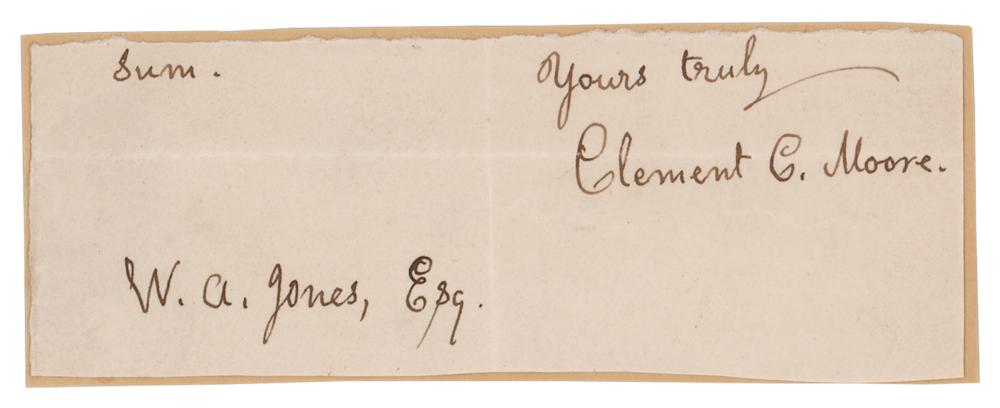 sum.
Yours truly
Clement C. Moore.
W. A. Jones, Esq.